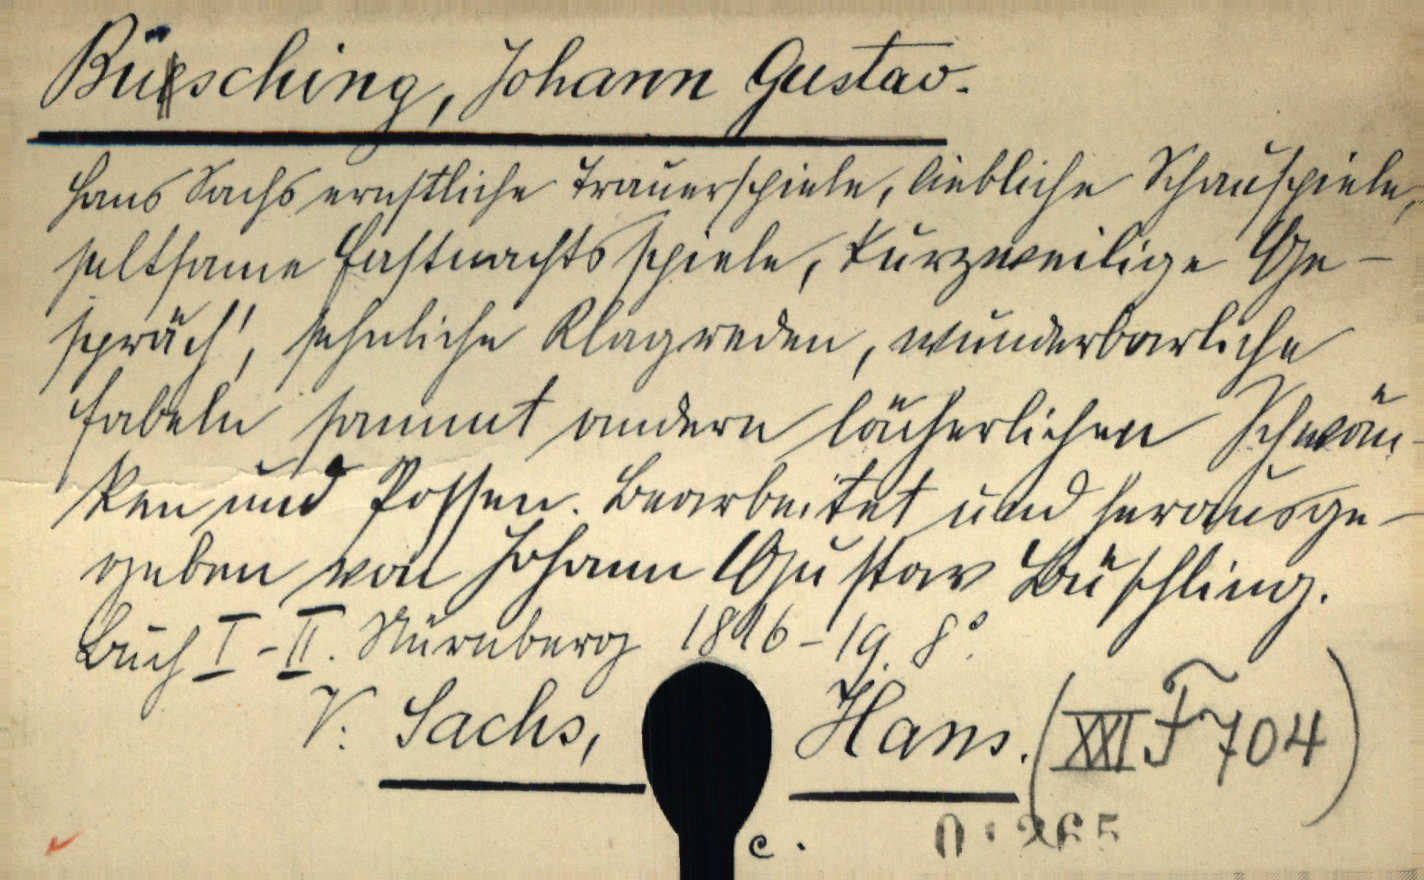 Büsching, Johann Gustav.
Hans Sachs ernstliche Trauerspiele, liebliche Schauspiele,
seltsame Fastnachtsspiele, kurzweilige Ge-
spräch', sehnliche Klagreden, wunderbarliche
Fabeln sammt andern lächerlichen Schwän-
ken und Possen. Bearbeitet und herausge-
geben von Johann Gustav Büschling.
Buch I-II. Nürnberg 1816-19. 8°.
V. Sachs, Hans. (XXI F 704)
c. 265